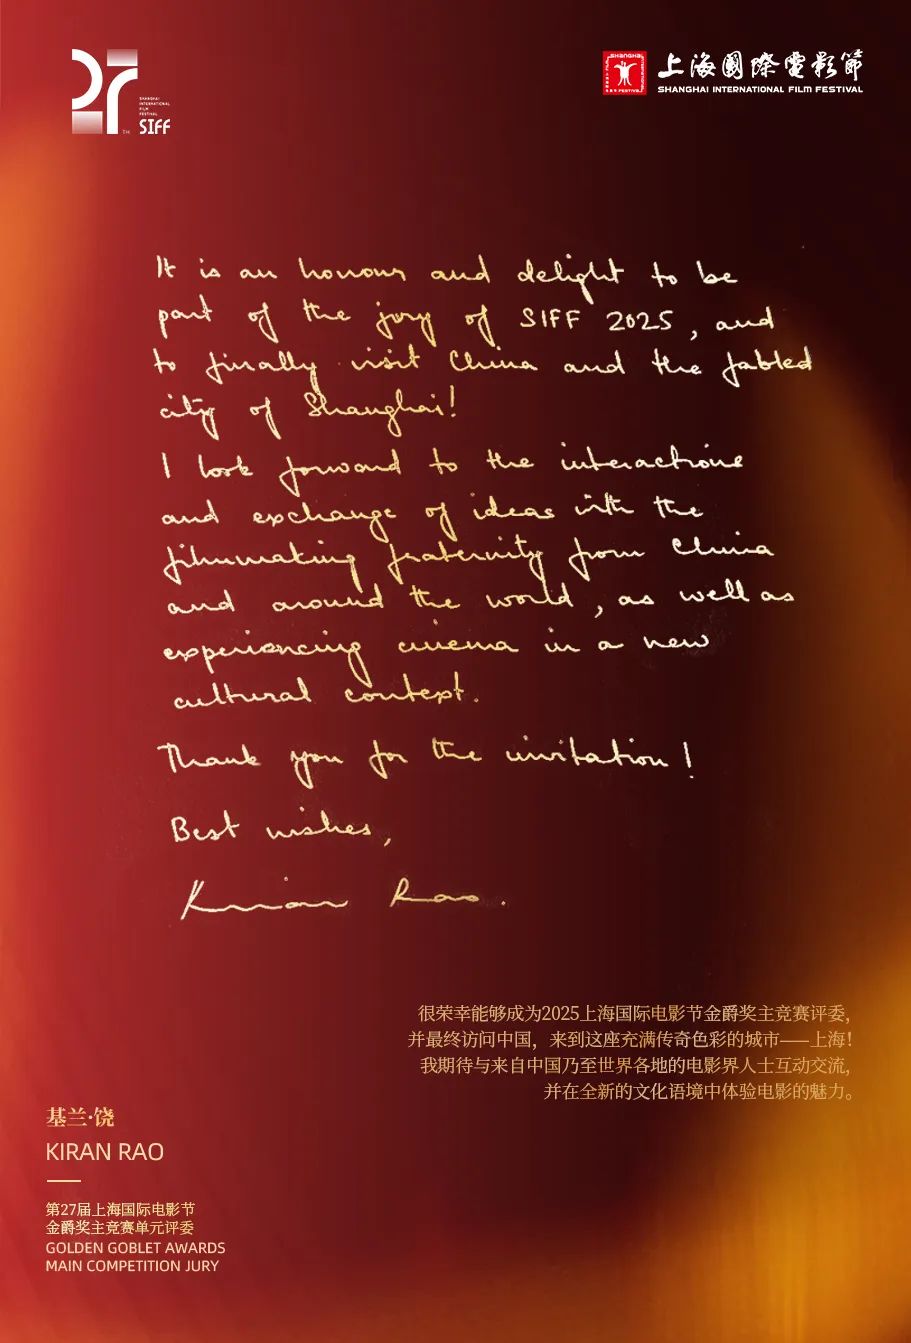 27
TM
SHANGHAI
INTERNATIONAL
FILM
FESTIVAL
SIFF
SHANGHAI
FESTIVAL
上海國際電影節
SHANGHAI INTERNATIONAL FILM FESTIVAL
It is an honour and delight to be
part of the jory of SIFF 2025, and
to finally visit China and the fabled
city of Shanghai!
I look forward to the interactions
and exchange of ideas with the
filmmaking fraternity from China
and around the world, as well as
experiencing cinema in a new
cultural context.
Thank you for the invitation!
Best wishes,
Kiran Rao.
很荣幸能够成为2025上海国际电影节金爵奖主竞赛评委，
并最终访问中国，来到这座充满传奇色彩的城市——上海！
我期待与来自中国乃至世界各地的电影界人士互动交流，
并在全新的文化语境中体验电影的魅力。
基兰·饶
KIRAN RAO
第27届上海国际电影节
金爵奖主竞赛单元评委
GOLDEN GOBLET AWARDS
MAIN COMPETITION JURY